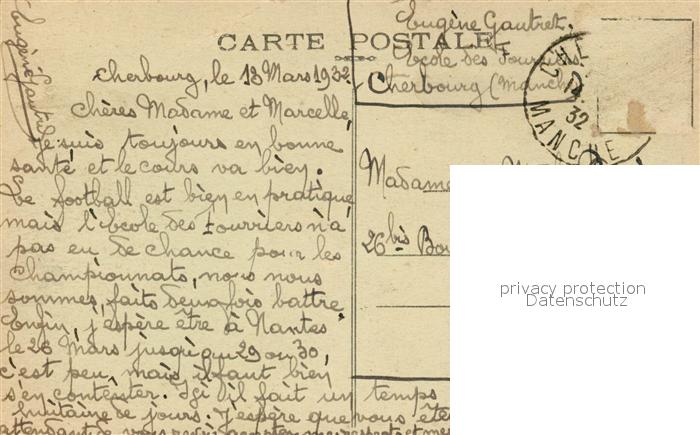 Eugène Gautret
CARTE POSTALE
Eugène Gautret.
École des Fourriers.
Cherbourg (Manche)
14 32
MANCHE
Cherbourg, le 13 Mars 1932.
Chères Madame et Marcelle,
Je suis toujours en bonne
santé et le cours va bien.
Le football est bien en pratique,
mais l'École des Fourriers n'a
pas eu de chance pour les
Championnats, nous nous
sommes faits deux fois battre.
Enfin, j'espère être à Nantes
le 26 Mars jusqu'au 29 ou 30,
c'est peu, mais il faut bien
s'en contenter. Ici il fait un temps
huitaine de jours. J'espère que vous ête
attendant de vous
Madame
26 bis Bou
privacy protection
Datenschutz